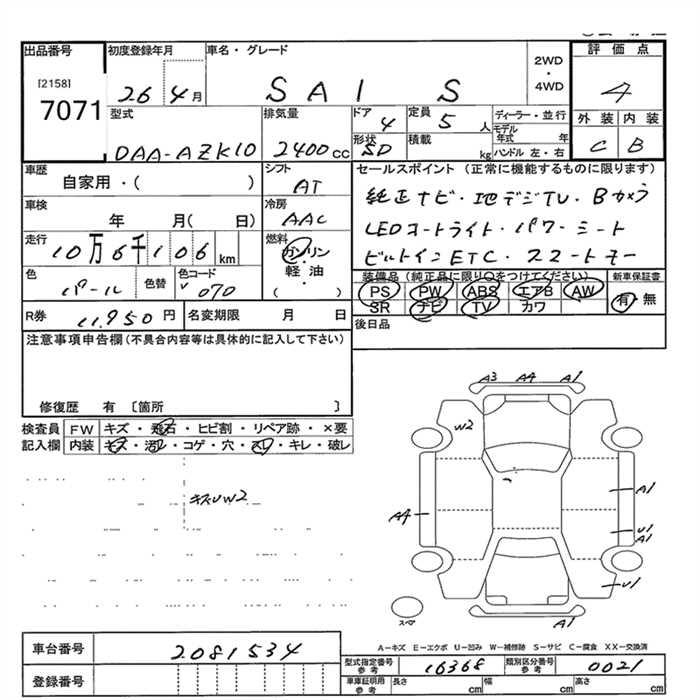 出品番号 初度登録年月 車名・グレード 評価点
[2158] 2WD ・ 4WD
7071 26 4月 SAI S 4
型式 排気量 ドア 4 定員 5人 ディーラー・並行 外装 内装
モデル年式 年
DAA-AZK10 2400cc 形状 SD 積載 kg ハンドル 左・右 C B
車歴 シフト セールスポイント (正常に機能するものに限ります)
自家用・( ) AT 純正ナビ・地デジTV・Bカメラ
車検 冷房
年 月( 日) AAC LEDオートライト・パワーシート
走行 燃料
10万6千106km ガソリン・軽油・( ) ビルトインETC・スマートキー
色 色替 色コード 装備品(純正品に限り○をつけてください) 新車保証書
パール 070 PS PW ABS エアB AW 有・無
SR ナビ TV カワ
R券 11,950円 名変期限 月 日 後日品
注意事項申告欄(不具合内容等は具体的に記入して下さい)
修復歴 有 〔箇所 〕
検査員 FW キズ・飛石・ヒビ割・リペア跡・×要
記入欄 内装 キズ・汚レ・コゲ・穴・スレ・キレ・破レ
A3 A4 A1
W2
キズUW2
A1
A4
U1
A1
U1
スペア
A1
A－キズ E－エクボ U－凹み W－補修跡 S－サビ C－腐食 XX－交換済
車台番号 2081534
型式指定番号 参考 16368 類別区分番号 参考 0021
登録番号
車庫証明用 参考 長さ cm 幅 cm 高さ cm